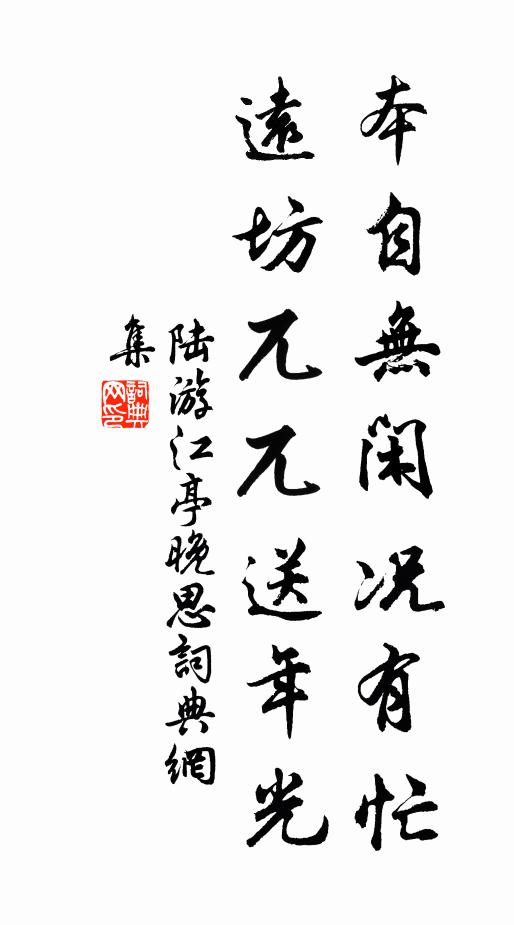 本自無閑況有忙
遠坊兀兀送年光
陆游江亭晚思詞典網
集
詞典
网印